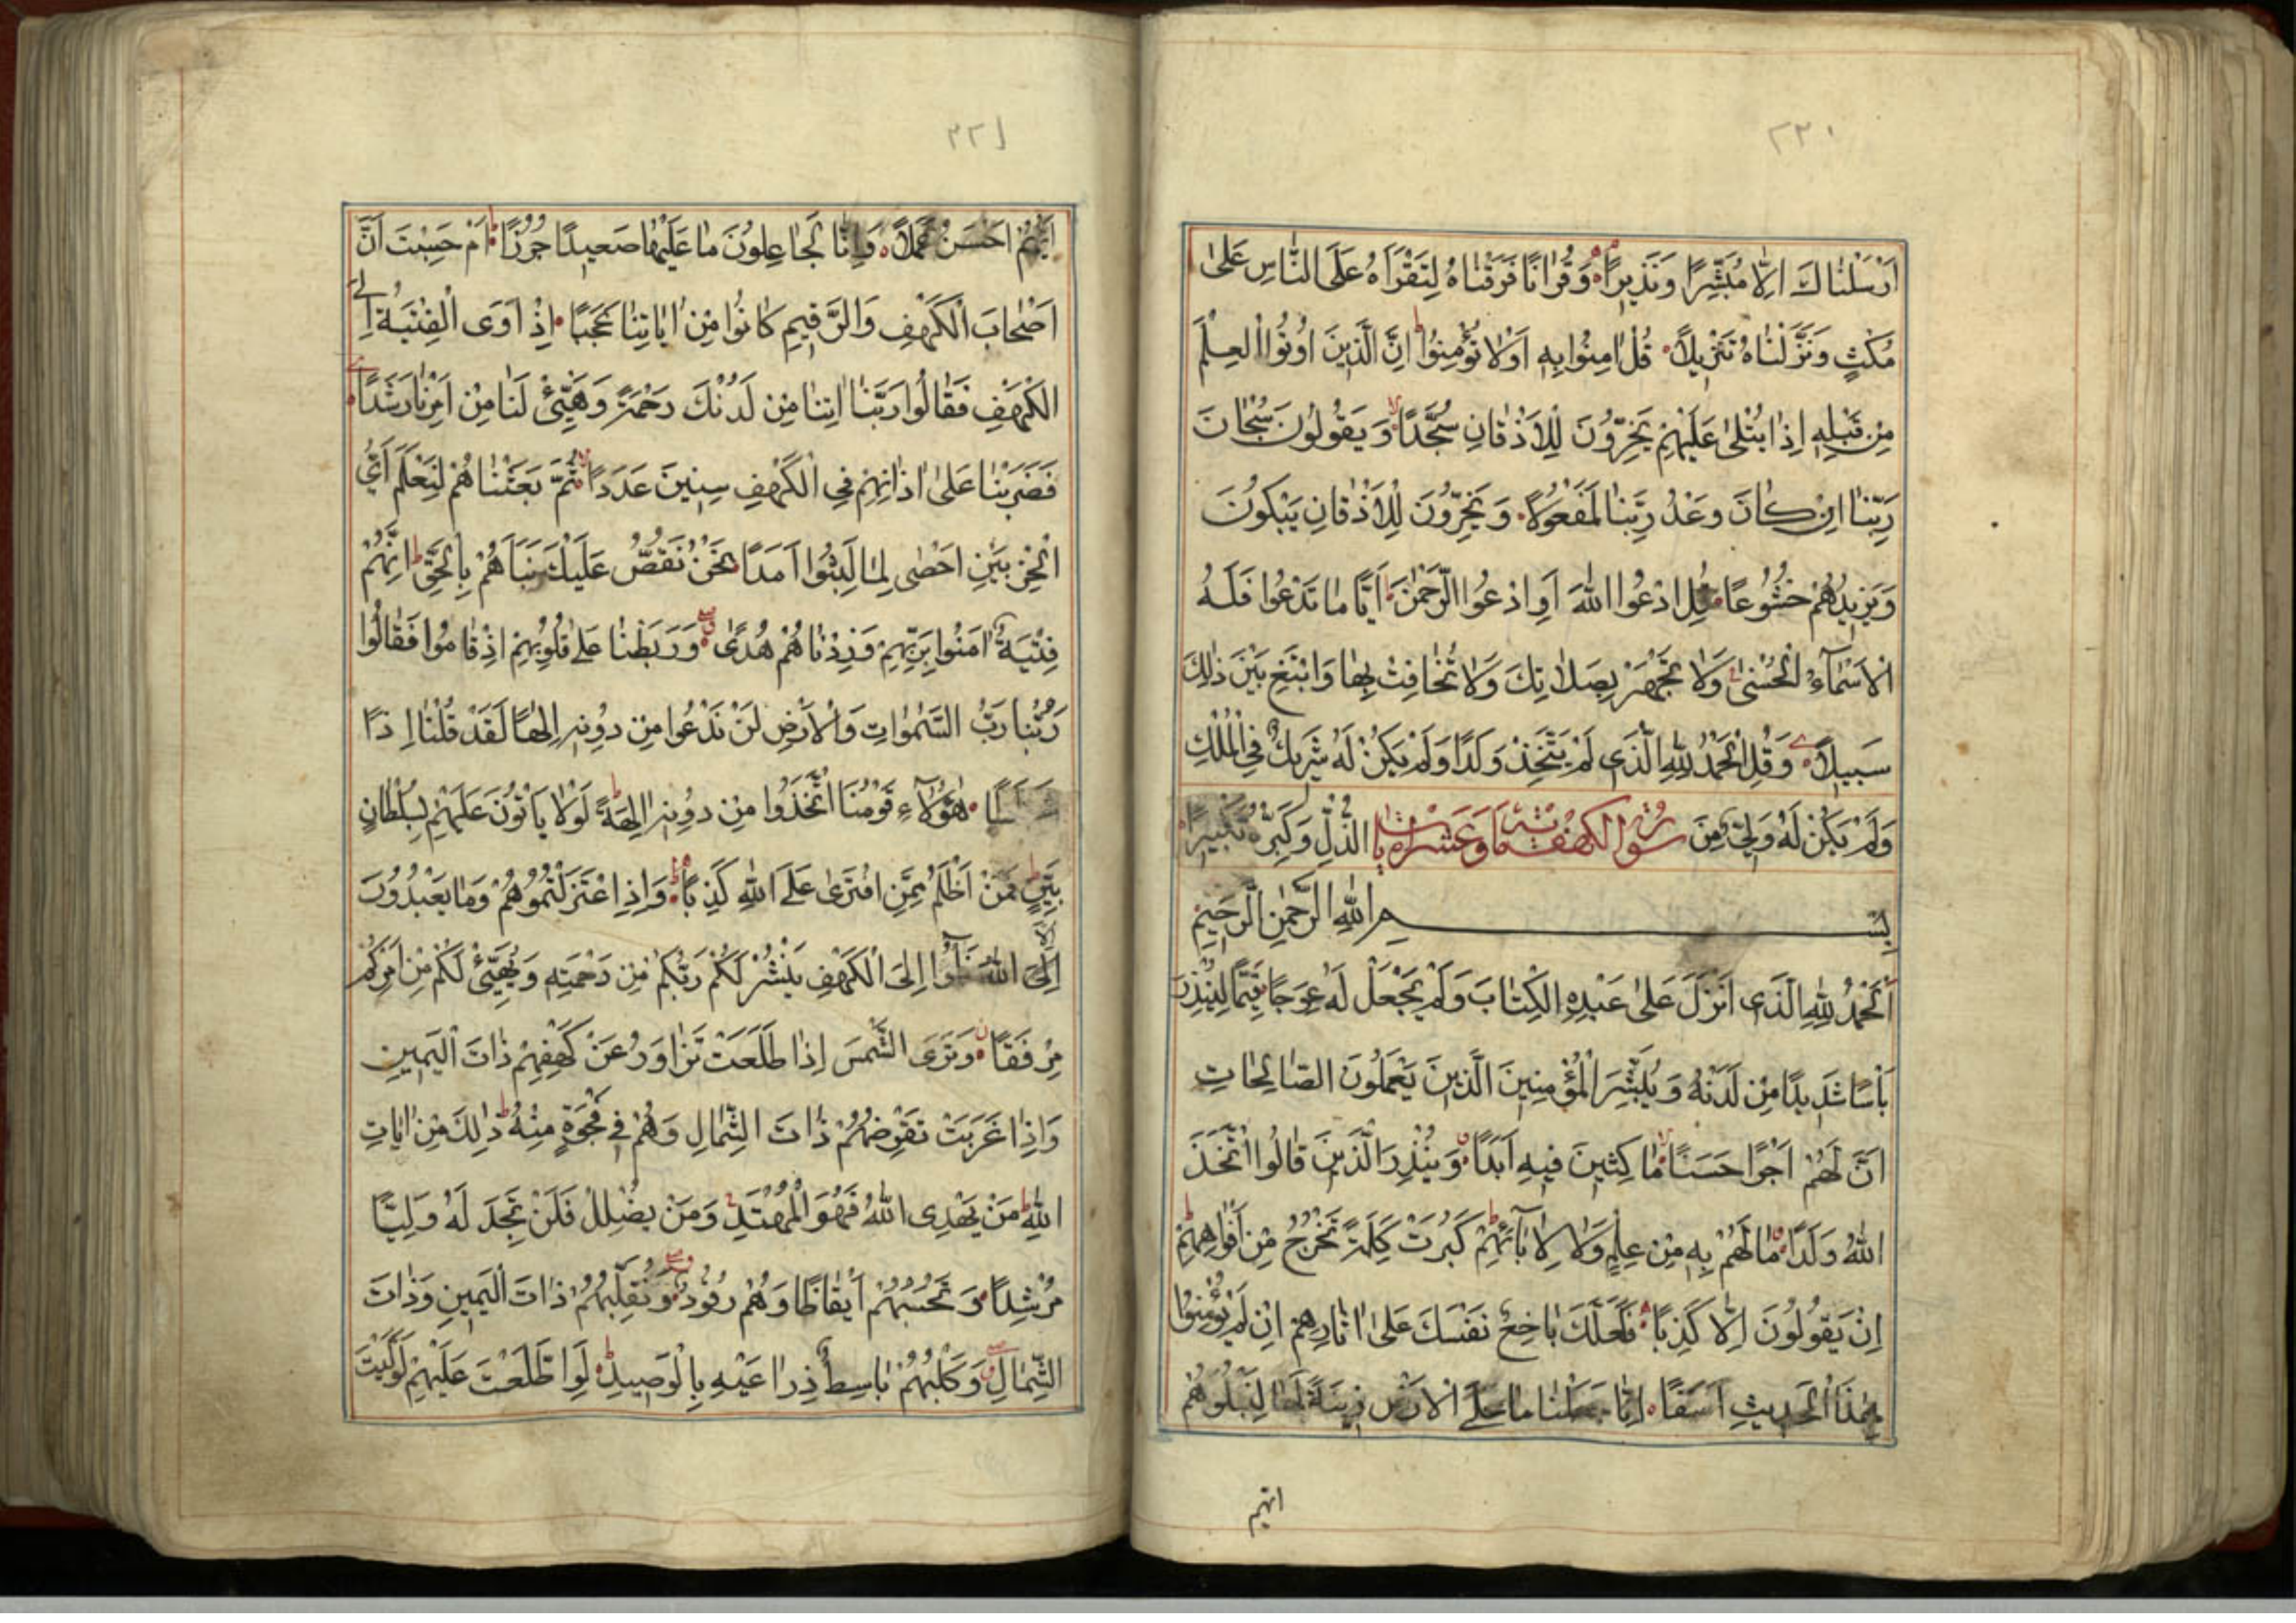 ٢٢٠
اَرْسَلْنَاكَ اِلَّا مُبَشِّرًا وَنَذِيرًا وَقُرْاٰنًا فَرَقْنَاهُ لِتَقْرَاَهُ عَلَى النَّاسِ عَلٰى
مُكْثٍ وَنَزَّلْنَاهُ تَنْزِيلًا قُلْ اٰمِنُوا بِهِ اَوْ لَا تُؤْمِنُوا اِنَّ الَّذِينَ اُوتُوا الْعِلْمَ
مِنْ قَبْلِهِ اِذَا يُتْلٰى عَلَيْهِمْ يَخِرُّونَ لِلْاَذْقَانِ سُجَّدًا وَيَقُولُونَ سُبْحَانَ
رَبِّنَا اِنْ كَانَ وَعْدُ رَبِّنَا لَمَفْعُولًا وَيَخِرُّونَ لِلْاَذْقَانِ يَبْكُونَ
وَيَزِيدُهُمْ خُشُوعًا قُلِ ادْعُوا اللّٰهَ اَوِ ادْعُوا الرَّحْمٰنَ اَيًّا مَا تَدْعُوا فَلَهُ
الْاَسْمَآءُ الْحُسْنٰى وَلَا تَجْهَرْ بِصَلَاتِكَ وَلَا تُخَافِتْ بِهَا وَابْتَغِ بَيْنَ ذٰلِكَ
سَبِيلًا وَقُلِ الْحَمْدُ لِلّٰهِ الَّذِى لَمْ يَتَّخِذْ وَلَدًا وَلَمْ يَكُنْ لَهُ شَرِيكٌ فِى الْمُلْكِ
وَلَمْ يَكُنْ لَهُ وَلِىٌّ مِنَ الذُّلِّ وَكَبِّرْهُ تَكْبِيرًا
سورة الكهف مائة وعشر ايات
بِسْمِ اللّٰهِ الرَّحْمٰنِ الرَّحِيمِ
اَلْحَمْدُ لِلّٰهِ الَّذِى اَنْزَلَ عَلٰى عَبْدِهِ الْكِتَابَ وَلَمْ يَجْعَلْ لَهُ عِوَجًا قَيِّمًا لِيُنْذِرَ
بَاْسًا شَدِيدًا مِنْ لَدُنْهُ وَيُبَشِّرَ الْمُؤْمِنِينَ الَّذِينَ يَعْمَلُونَ الصَّالِحَاتِ
اَنَّ لَهُمْ اَجْرًا حَسَنًا مَاكِثِينَ فِيهِ اَبَدًا وَيُنْذِرَ الَّذِينَ قَالُوا اتَّخَذَ
اللّٰهُ وَلَدًا مَا لَهُمْ بِهِ مِنْ عِلْمٍ وَلَا لِاٰبَآئِهِمْ كَبُرَتْ كَلِمَةً تَخْرُجُ مِنْ اَفْوَاهِهِمْ
اِنْ يَقُولُونَ اِلَّا كَذِبًا فَلَعَلَّكَ بَاخِعٌ نَفْسَكَ عَلٰى اٰثَارِهِمْ اِنْ لَمْ يُؤْمِنُوا
بِهٰذَا الْحَدِيثِ اَسَفًا اِنَّا جَعَلْنَا مَا عَلَى الْاَرْضِ زِينَةً لَهَا لِنَبْلُوَهُمْ
ايهم
٢٢١
اَيُّهُمْ اَحْسَنُ عَمَلًا وَاِنَّا لَجَاعِلُونَ مَا عَلَيْهَا صَعِيدًا جُرُزًا اَمْ حَسِبْتَ اَنَّ
اَصْحَابَ الْكَهْفِ وَالرَّقِيمِ كَانُوا مِنْ اٰيَاتِنَا عَجَبًا اِذْ اَوَى الْفِتْيَةُ اِلَى
الْكَهْفِ فَقَالُوا رَبَّنَا اٰتِنَا مِنْ لَدُنْكَ رَحْمَةً وَهَيِّئْ لَنَا مِنْ اَمْرِنَا رَشَدًا
فَضَرَبْنَا عَلٰى اٰذَانِهِمْ فِى الْكَهْفِ سِنِينَ عَدَدًا ثُمَّ بَعَثْنَاهُمْ لِنَعْلَمَ اَىُّ
الْحِزْبَيْنِ اَحْصٰى لِمَا لَبِثُوا اَمَدًا نَحْنُ نَقُصُّ عَلَيْكَ نَبَاَهُمْ بِالْحَقِّ اِنَّهُمْ
فِتْيَةٌ اٰمَنُوا بِرَبِّهِمْ وَزِدْنَاهُمْ هُدًى وَرَبَطْنَا عَلٰى قُلُوبِهِمْ اِذْ قَامُوا فَقَالُوا
رَبُّنَا رَبُّ السَّمٰوَاتِ وَالْاَرْضِ لَنْ نَدْعُوَا مِنْ دُونِهِ اِلٰهًا لَقَدْ قُلْنَا اِذًا
شَطَطًا هٰؤُلَآءِ قَوْمُنَا اتَّخَذُوا مِنْ دُونِهِ اٰلِهَةً لَوْلَا يَاْتُونَ عَلَيْهِمْ بِسُلْطَانٍ
بَيِّنٍ فَمَنْ اَظْلَمُ مِمَّنِ افْتَرٰى عَلَى اللّٰهِ كَذِبًا وَاِذِ اعْتَزَلْتُمُوهُمْ وَمَا يَعْبُدُونَ
اِلَّا اللّٰهَ فَاْوُا اِلَى الْكَهْفِ يَنْشُرْ لَكُمْ رَبُّكُمْ مِنْ رَحْمَتِهِ وَيُهَيِّئْ لَكُمْ مِنْ اَمْرِكُمْ
مِرْفَقًا وَتَرَى الشَّمْسَ اِذَا طَلَعَتْ تَزَاوَرُ عَنْ كَهْفِهِمْ ذَاتَ الْيَمِينِ
وَاِذَا غَرَبَتْ تَقْرِضُهُمْ ذَاتَ الشِّمَالِ وَهُمْ فِى فَجْوَةٍ مِنْهُ ذٰلِكَ مِنْ اٰيَاتِ
اللّٰهِ مَنْ يَهْدِى اللّٰهُ فَهُوَ الْمُهْتَدِ وَمَنْ يُضْلِلْ فَلَنْ تَجِدَ لَهُ وَلِيًّا
مُرْشِدًا وَتَحْسَبُهُمْ اَيْقَاظًا وَهُمْ رُقُودٌ وَنُقَلِّبُهُمْ ذَاتَ الْيَمِينِ وَذَاتَ
الشِّمَالِ وَكَلْبُهُمْ بَاسِطٌ ذِرَاعَيْهِ بِالْوَصِيدِ لَوِ اطَّلَعْتَ عَلَيْهِمْ لَوَلَّيْتَ